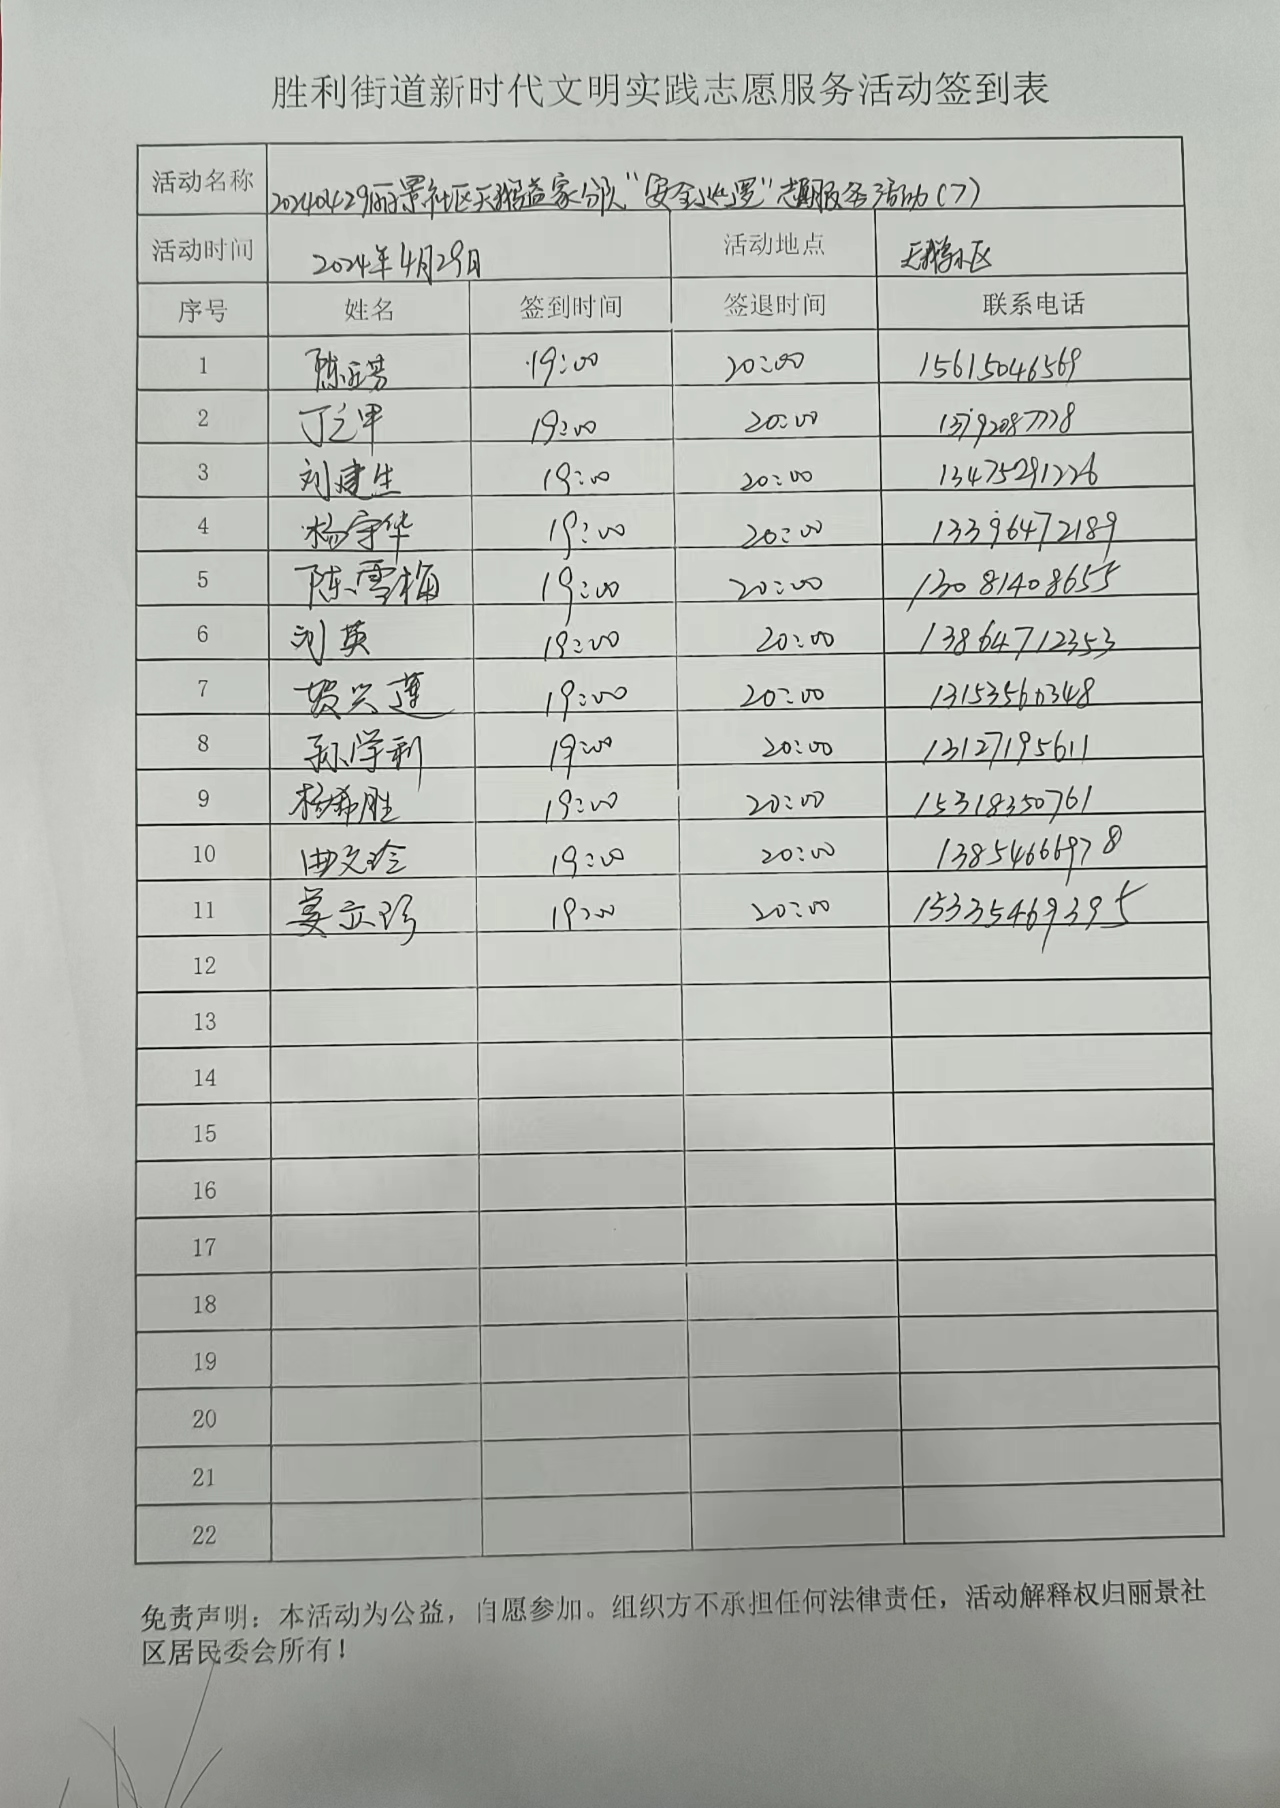 胜利街道新时代文明实践志愿服务活动签到表
活动名称 20240429丽景社区天鹅益家分队“安全巡逻”志愿服务活动(7)
活动时间 2024年4月29日 活动地点 天鹅小区
序号 姓名 签到时间 签退时间 联系电话
1 19:00 20:00 15615046569
2 19:00 20:00 13792087728
3 刘建生 19:00 20:00 13475291226
4 杨宇华 19:00 20:00 13396472189
5 陈雪梅 19:00 20:00 13081408655
6 刘英 19:00 20:00 13864712353
7 19:00 20:00 13153560348
8 孙学利 19:00 20:00 13127195611
9 杨希胜 19:00 20:00 15318350761
10 曲文玲 19:00 20:00 13854666978
11 姜立珍 19:00 20:00 15335469395
12
13
14
15
16
17
18
19
20
21
22
免责声明：本活动为公益，自愿参加。组织方不承担任何法律责任，活动解释权归丽景社
区居民委会所有！